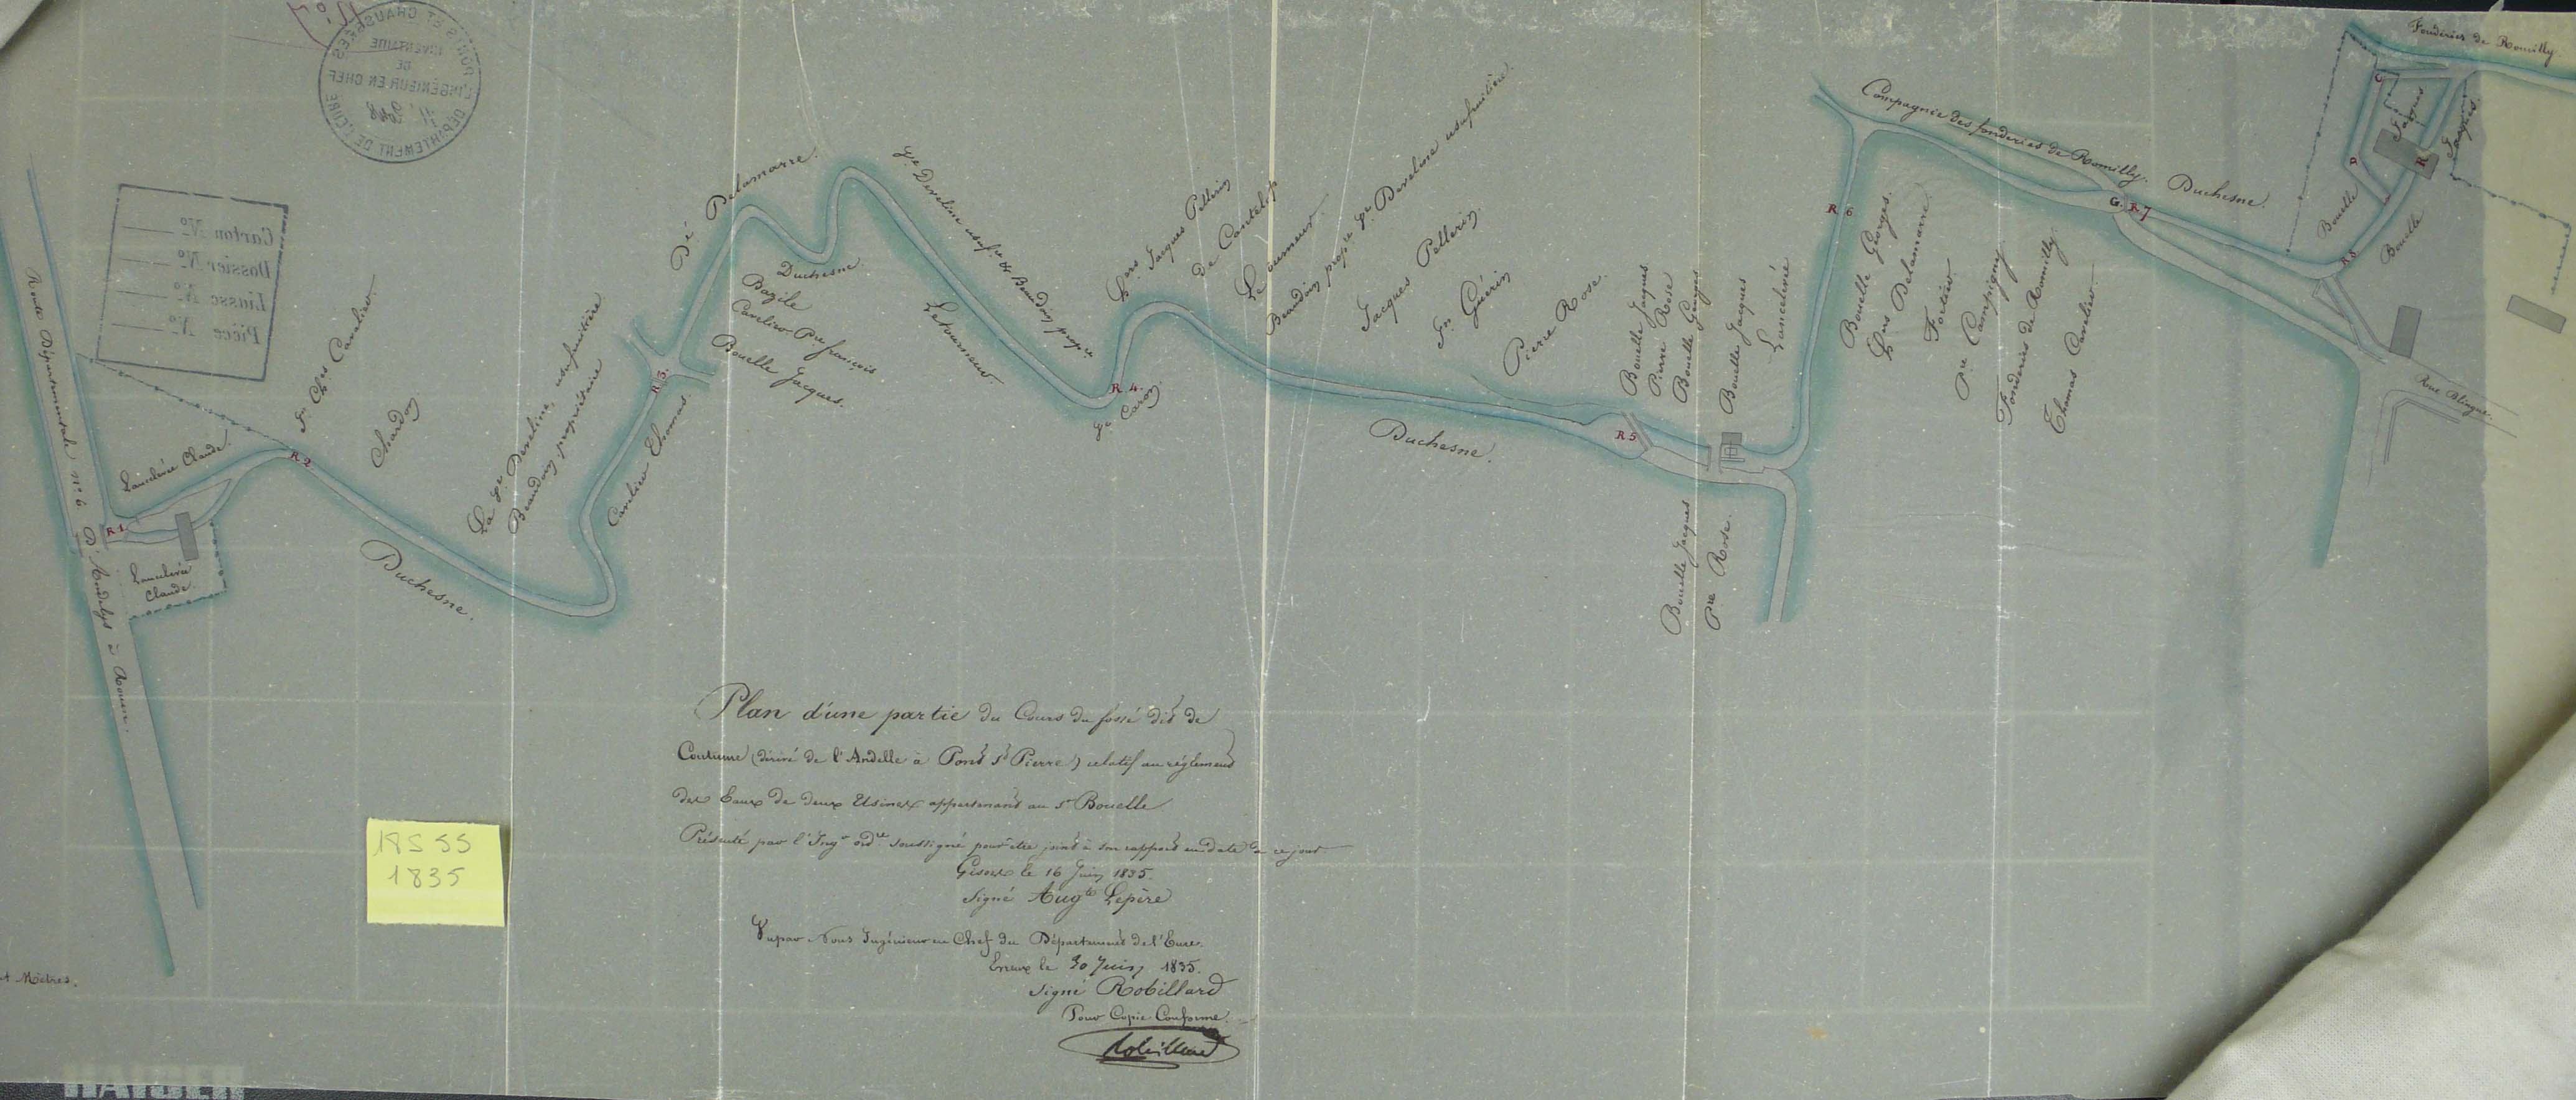 PONTS ET CHAUSSÉES
INVENTAIRE
DE
L'INGÉNIEUR EN CHEF
DÉPARTEMENT DE L'EURE
Carton Nº
Dossier Nº
Liasse Nº
Pièce Nº
Route Départementale nº 6 D'Andelys à Rouen.
R 1
Lancelevée Claude
Lancelevée
Claude.
R 2
Fn Ches Cavelier
Chardon
Duchesne.
La De Develine, usufruitière
Beaudoin propriétaire
Cavelier Thomas.
R 3.
De Delamarre.
Duchesne.
Bazile
Cavelier Pre françois
Bouelle Jacques.
De Develine usufre & Beaudoin propre
Letourneur.
R 4.
Le Caron
Lers Jacques Pellerin
de Cantelop
Le tourneur
Beaudoin propre De Develine usufruitière.
Jacques Pellerin.
Fn Guérin
Pierre Rose.
Duchesne.
R 5
Bouelle Jacques
Pierre Rose
Bouelle Georges
Bouelle Jacques
Lancelevé
Bouelle Jacques
Pre Rose.
R 6
Bouelle Georges.
Lers Delamarre.
Fortier
Pre Campigny
Fonderies de Romilly.
Thomas Cavelier.
Compagnie des fonderies de Romilly.
G. R 7
Duchesne.
R 8
Bouelle
Bouelle
Jacques
Jacques
R
Fonderies de Romilly
Rue Blingue.
Plan d'une partie du Cours du fossé dit de
Coutume (dérivé de l'Andelle à Pont St Pierre) relatif au réglement
des Eaux de deux Usines appartenant au Sr Bouelle
Présenté par l'Ingr ordre soussigné pour être joint à son rapport en date de ce jour.
Gisors le 16 Juin 1835.
Signé Augte Lepère
Vu par Nous Ingénieur en Chef du Département de l'Eure.
Evreux le 30 Juin 1835.
Signé Robillard
Pour Copie Conforme.
Robillard
18S 55
1835
Mètres.
HAIGER